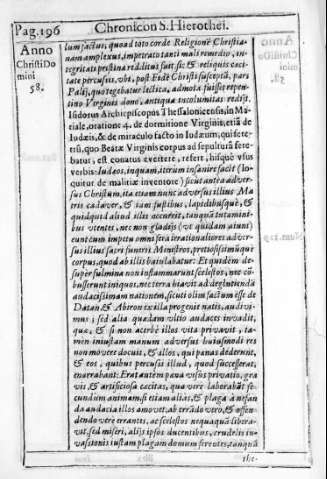 Pag. 196
Chronicon S. Hierothei.
Anno
Christi Do
mini
58.
lum factus, quoad toto corde Religionē Christia-
nam amplexus, impetrato tanti mali remedio, in-
tegritati pristina redditus fuit, sic & reliquis caci-
tate percussis, vbi, post Fidē Christi susceptā, pars
Palij, quo tegebatur lectica, admota fuisset repen-
tino Virginis dono, antiqua incolumitas redijt.
Isidorus Archiepiscopus Thessalonicensis, in Ma-
riale, oratione 4. de dormitione Virginis, etiā de
Iudæis, & de miraculo facto in Iudæum, qui fere-
trū, quo Beatæ Virginis corpus ad sepulturā fere-
batur, est conatus evertere, refert, hisquè vsus
verbis: Iudæos, inquam, iterum insanire facit (lo-
quitur de malitiæ inventore) sicut antea adver-
sus Christum, ita etiam nunc adversus illius Ma-
tris cadaver, & tam fustibus, lapidibusquè, &
quidquid aliud illis occurrit, tanquā tutamini-
bus vtentes, nec non gladijs (vt quidam aiunt)
eunt cum impetu omni ferâ irrationaliores adver-
sus illius sacri funeris Ministros, pretiosissimūque
corpus, quod ab illis baiulabatur: Et quidem de-
super fulmina non inflammarunt scelestos, nec cō-
busserunt iniquos, nec terra hiavit ad deglutiendā
audacissimam nationem, sicuti olim factum esse de
Datan & Abiron ex illa progenit natis, audivi-
mus; sed alia quædam vltio audaces invadit,
quæ, & si non acerbè illos vita privavit, ta-
men iniustam manum adversus huiusmodi res
non movere docuit, & illos, qui pœnas dederunt,
& eos, quibus percussi illud, quod successerat,
enarrabant: Erat autem pœna visûs privatio, gra
vis & artificiosa cæcitas, quæ verè laborabāt se-
cundūm animam, sī etiam alias, & plaga à nefan
da audacia illos amovet, ab errādo verò, & offen-
dendo verè errantes, ac scelestos nequaquā libera-
vit, sed miseri, alijs ipsos ducentibus, crudelis in-
vasionis iustam plagam domum ferentes, tanquā
the-